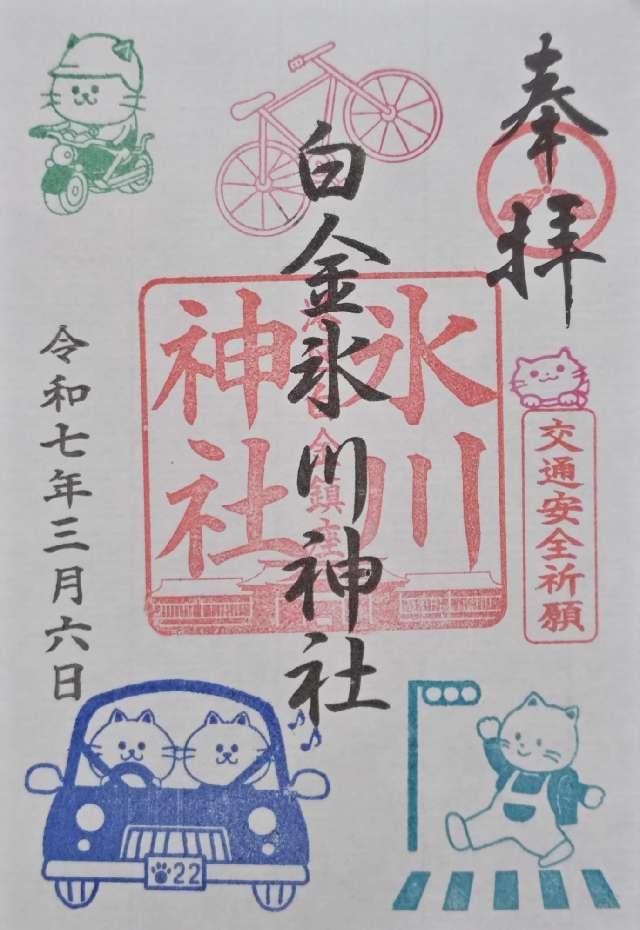 奉拝
白金氷川神社
氷川
神社
交通安全祈願
令和七年三月六日
22